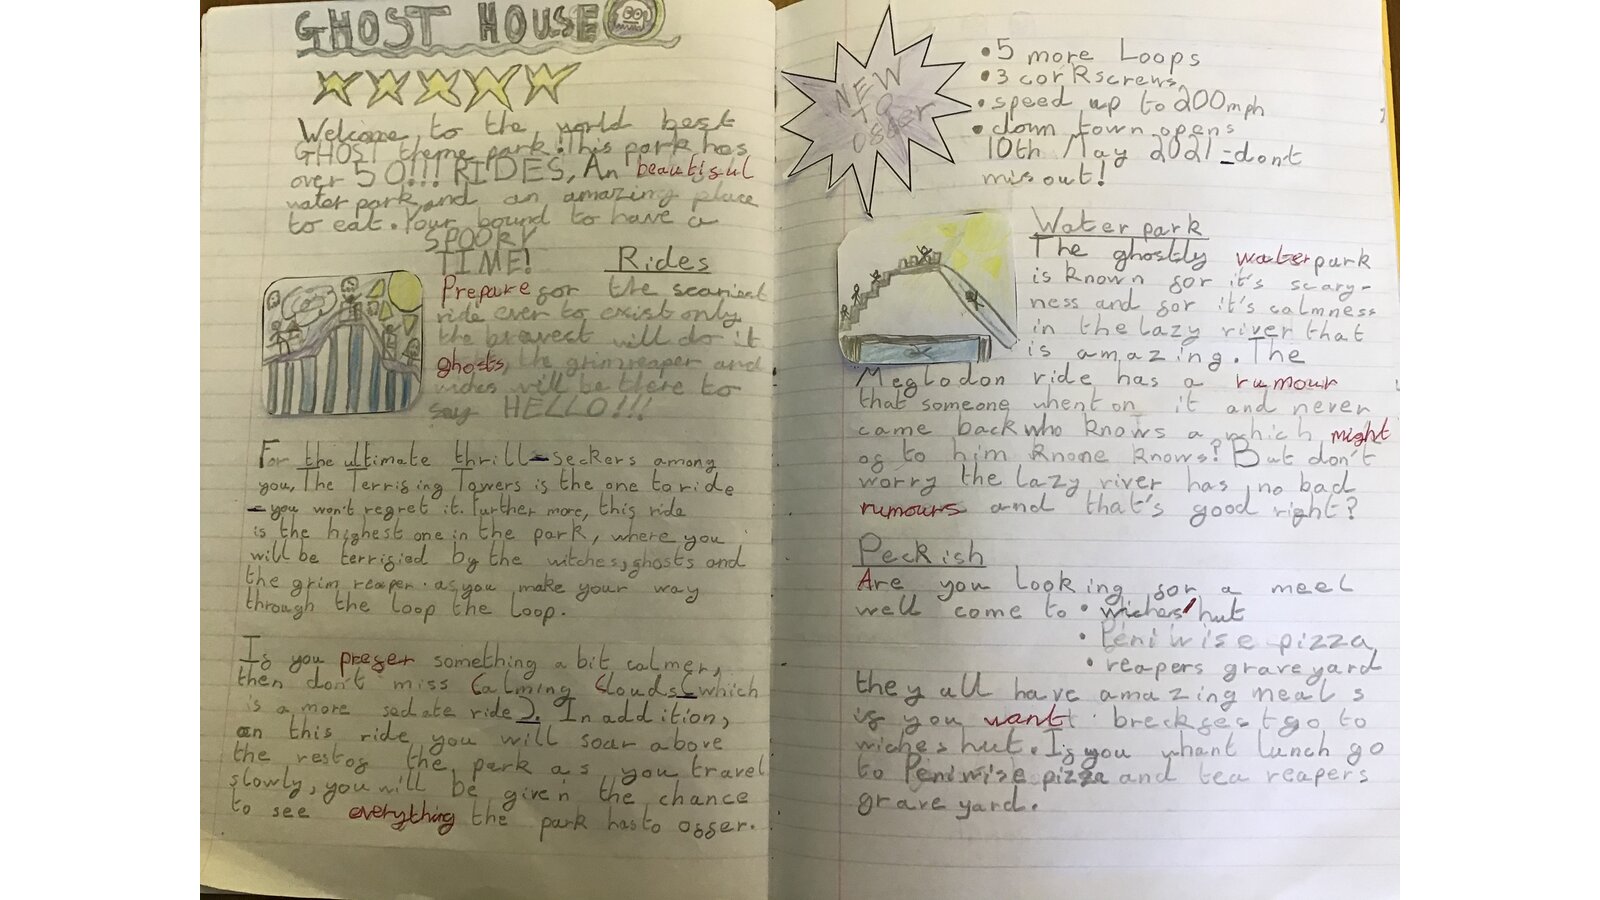 GHOST HOUSE
Welcome to the world best
GHOST theme park. This park has
over 50!!! RIDES, An beautiful
water park, and an amazing place
to eat. Your bound to have a
SPOOKY
TIME!
Rides
Prepare for the scariest
ride ever to exist only
the bravest will do it
ghosts, the grim reaper and
will be there to
say HELLO!!!
For the ultimate thrill-seekers among
you, The Terrifing Towers is the one to ride
- you won't regret it. Further more, this ride
is the highest one in the park, where you
will be terrified by the witches, ghosts and
the grim reaper. as you make your way
through the loop the loop.
If you prefer something a bit calmer,
then don't miss Calming Clouds (which
is a more sedate ride). In addition,
on this ride you will soar above
the rest of the park as you travel
slowly, you will be given the chance
to see everything the park has to offer.
NEW
TO
offer
• 5 more Loops
• 3 corkscrews
• speed up to 200mph
• down town opens
10th May 2021 - dont
mis out!
Water park
The ghostly waterpark
is known for it's scary-
ness and for it's calmness
in the lazy river that
is amazing. The
Meglodon ride has a rumour
that someone whent on it and never
came back who knows a which might
of to him knone knows? But don't
worry the lazy river has no bad
rumours and that's good right?
Peckish
Are you looking for a meel
well come to • wiches' hut
• Peniwise pizza
• reapers graveyard
they all have amazing meals
if you want breckfest go to
wiches hut. If you whant lunch go
to Peniwise pizza and tea reapers
grave yard.